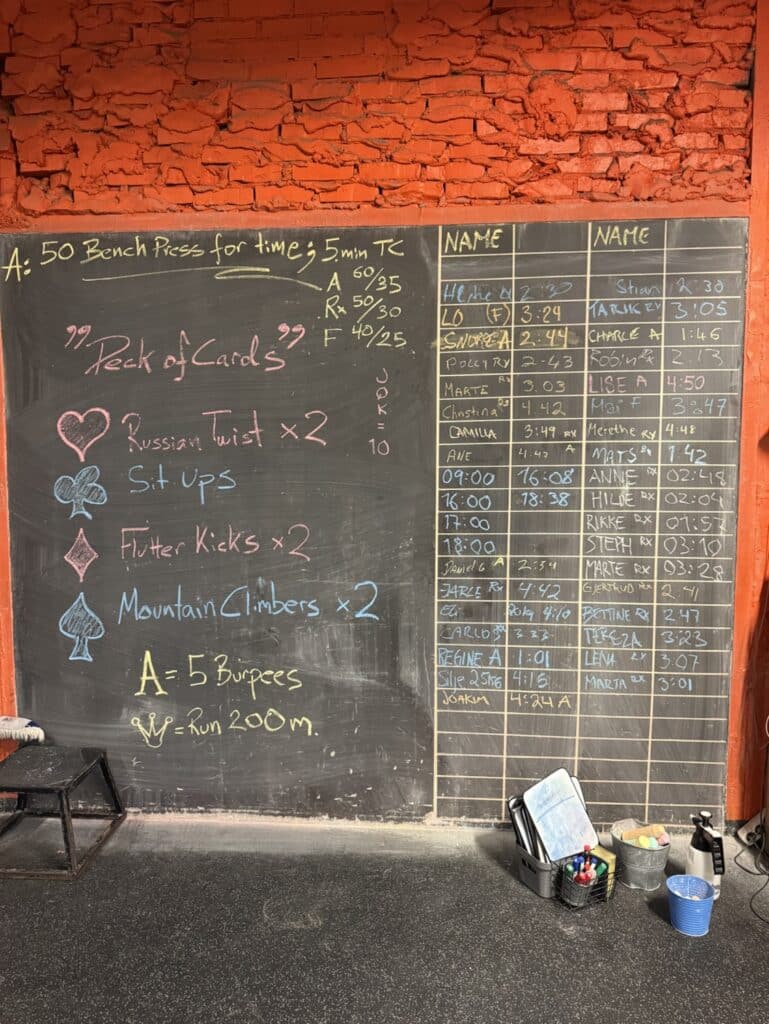 A: 50 Bench Press for time; 5min TC
A 60/35
Rx 50/30
F 40/25
"Deck of Cards"
J
Q
K
=
10
Russian Twist x2
Sit ups
Flutter Kicks x2
Mountain Climbers x2
A = 5 Burpees
= Run 200m.
NAME NAME
2:30 Stian 2:30
LO (F) 3:24 TARIK RX 3:05
SNORRE A 2:44 CHARLE A 1:46
POLLY RX 2:43 Robin RX 2:13
MARTE RX 3.03 LISE A 4:50
Christina RX 4.42 Mai F 3:47
CAMILLA 3:49 RX Merethe RX 4:48
ANE 4:42 A MATS 1:42
09:00 16:08 ANNE RX 02:48
16:00 18:38 HILDE RX 02:04
17:00 RIKKE RX 01:57
18:00 STEPH RX 03:10
Daniel G A 2:54 MARTE RX 03:28
JARLE RX 4:42 GJERTRUD RX 2:41
Eli 20kg 4:10 BETTINE RX 2:47
CARLOS RX 3:33 TEREZA 3:23
REGINE A 1:01 LENA RX 3:07
Silje 25kg 4:15 MARTA RX 3:01
JOAKIM 4:24 A